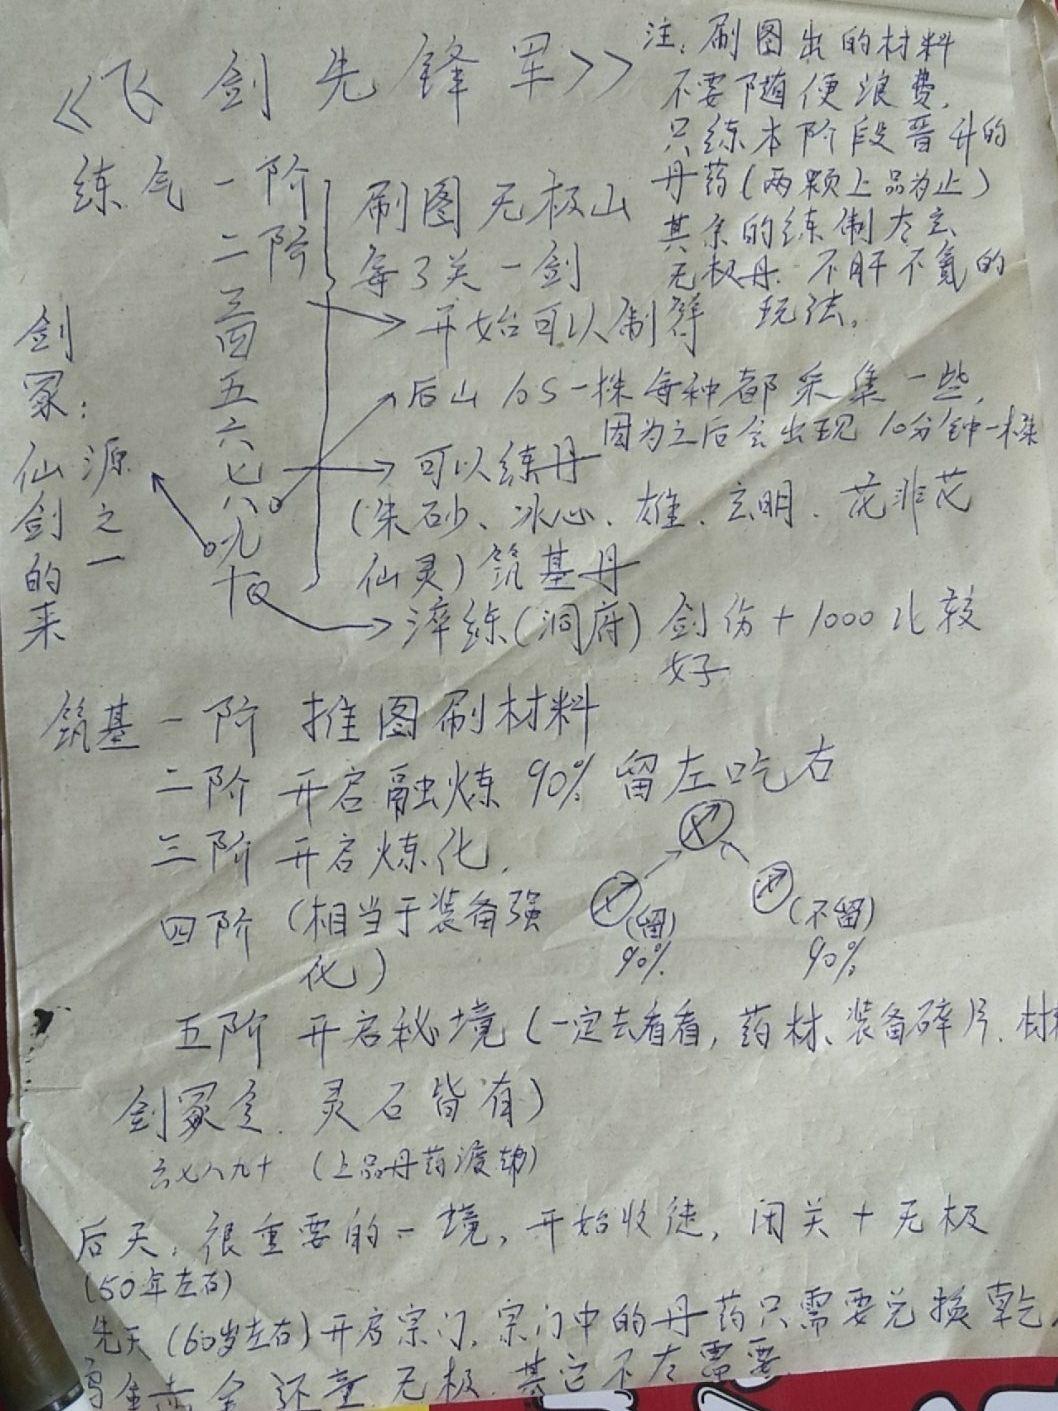 《飞剑先锋军》
注:刷图出的材料
不要随便浪费,
只练本阶段晋升的
丹药(两颗上品为止)
其余的练制太玄
无极丹.不肝不氪的
玩法。
练气一阶
二阶
三
四
五
六
七
八
九
十
刷图无极山
每3关一剑
开始可以制符
后山10S一株每种都采集一些,
因为之后会出现10分钟一株
可以练丹
(朱砂、冰心、雄、玄明、花非花
仙灵)筑基丹
淬练(洞府)剑伤+1000比较
好
剑冢:
仙剑的来
源之一
筑基一阶 推图刷材料
二阶 开启融炼90% 留左吃右
三阶 开启炼化.
四阶(相当于装备强
化)
(留)
90%
(不留)
90%
五阶 开启秘境(一定去看看,药材、装备碎片、材
剑冢令.灵石皆有)
六七八九十(上品丹药渡劫)
后天:很重要的一境,开始收徒,闭关+无极
(50年左右)
先天(60岁左右)开启宗门,宗门中的丹药只需要兑换乾
金 还童.无极.其它不太需要